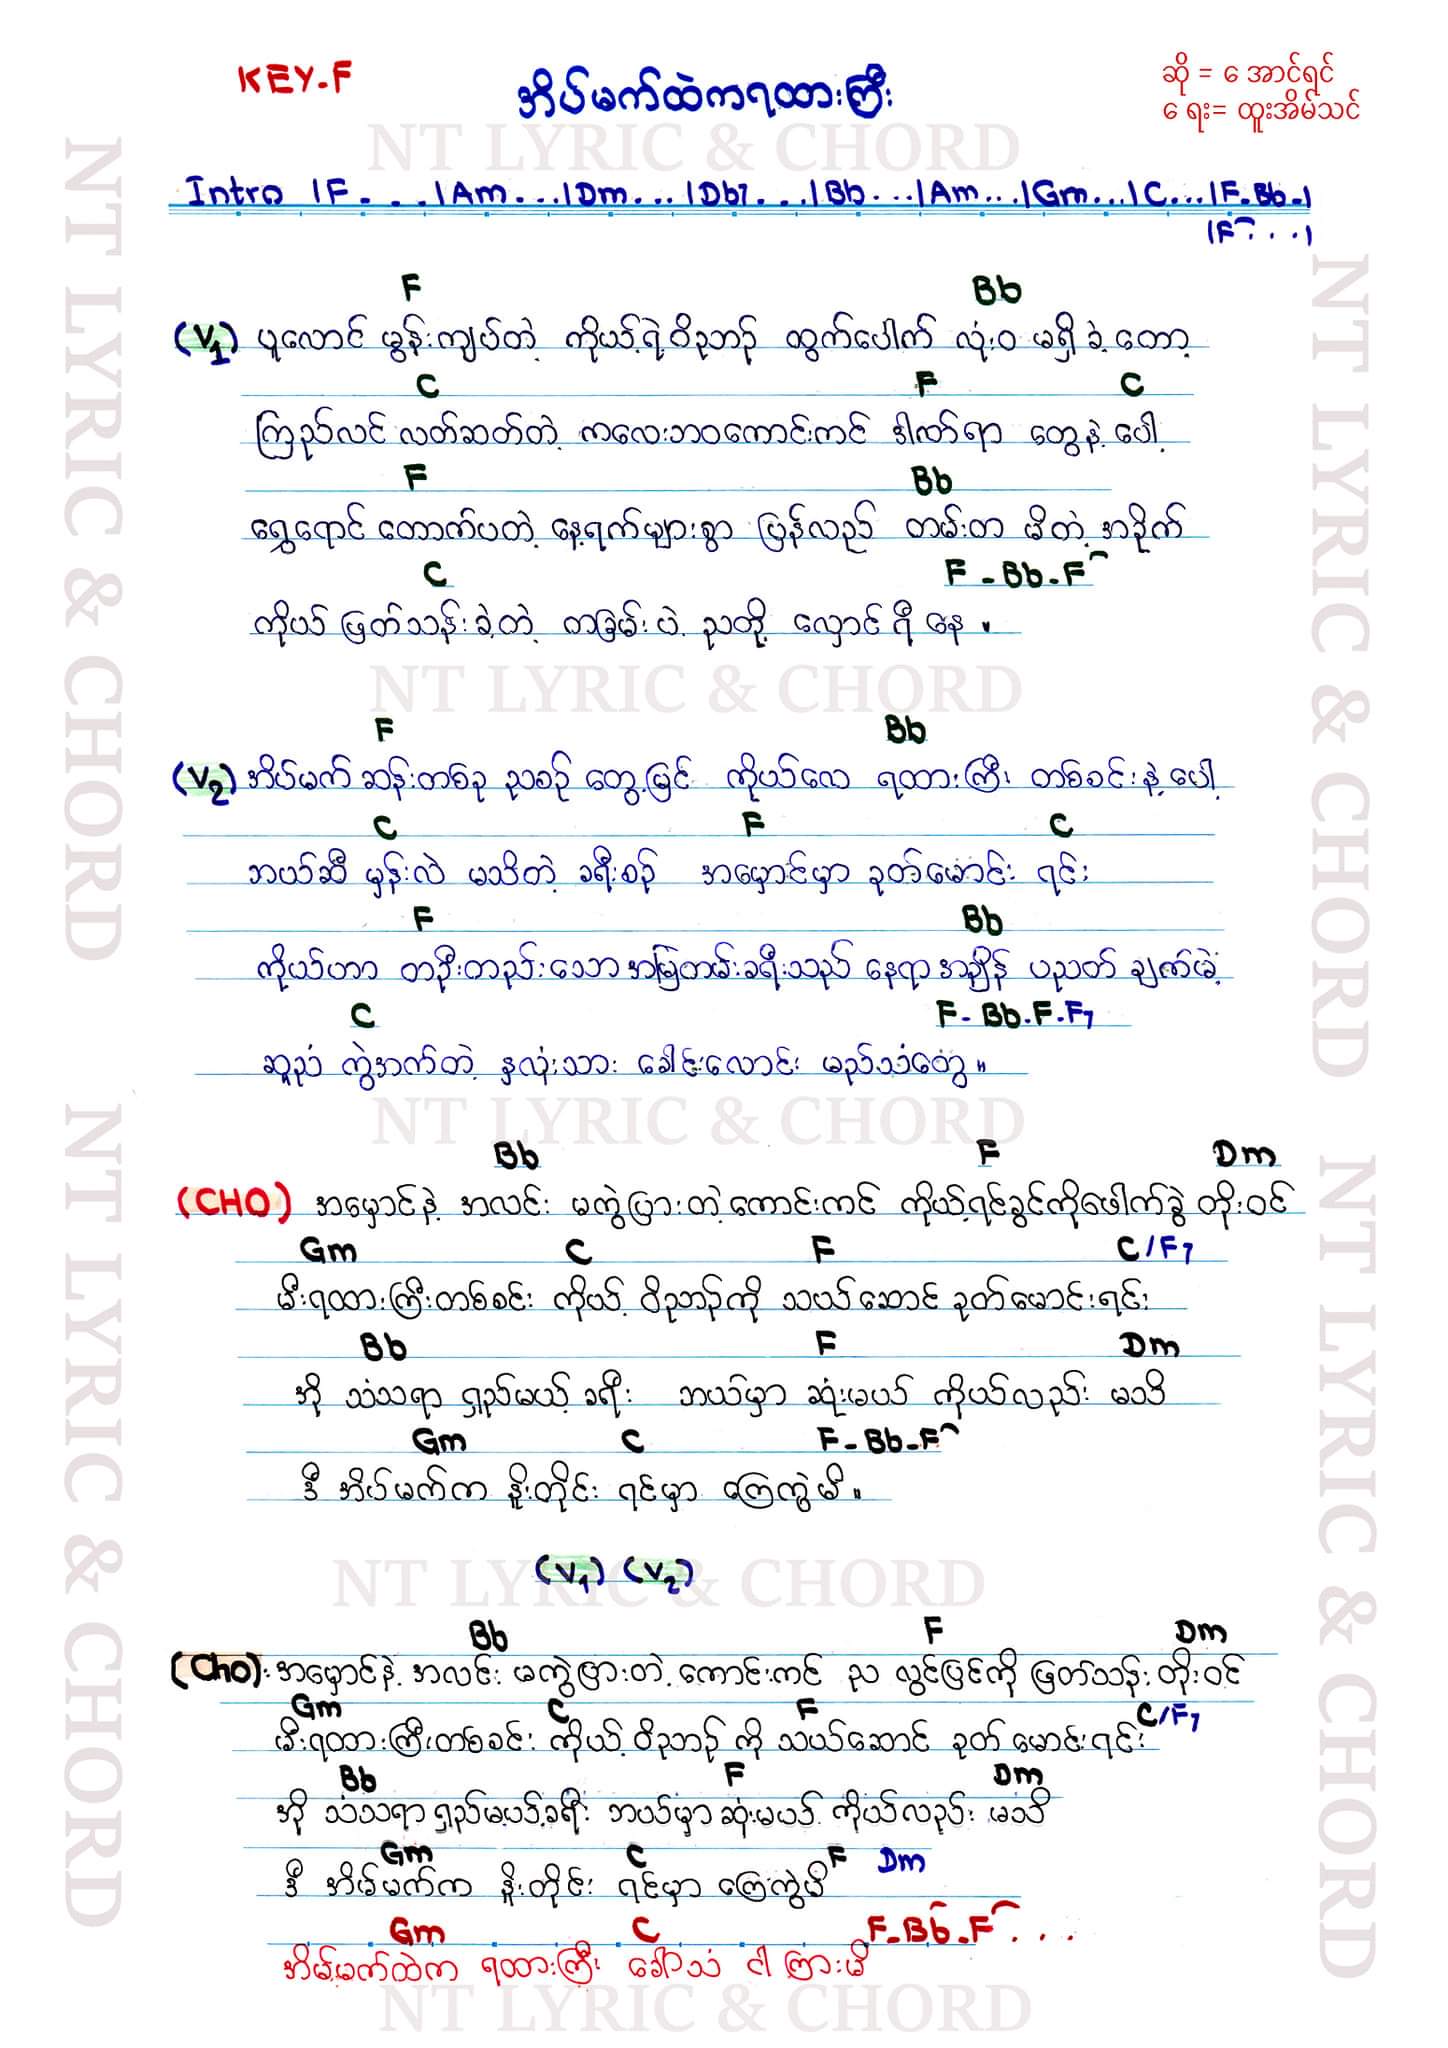 KEY-F
အိပ်မက်ထဲကရထားကြီး
ဆို = အောင်ရင်
ရေး= ထူးအိမ်သင်
NT LYRIC & CHORD
Intro |F - . . |Am . . . |Dm . . . |Db7 . . . |Bb . . . |Am . . . |Gm . . . |C . . . |F-Bb-|
|F . . . |
F Bb
(V1) ပူလောင် မွန်းကျပ်တဲ့ ကိုယ့်ရဲ့ဝိဉာဉ် ထွက်ပေါက် လုံးဝ မရှိခဲ့တော့
C F C
ကြည်လင် လတ်ဆတ်တဲ့ ကလေးဘဝကောင်းကင် ဒါဏ်ရာ တွေနဲ့ပေါ့
F Bb
ရွှေရောင် တောက်ပတဲ့ နေ့ရက်များစွာ ပြန်လည် တမ်းတ မိတဲ့ အခိုက်
C F - Bb - F
ကိုယ် ဖြတ်သန်းခဲ့တဲ့ ကခြမ်းပဲ့ ညတို့ လှောင်ရီနေ ။
NT LYRIC & CHORD
F Bb
(V2) အိပ်မက် ဆန်းတစ်ခု ညစဉ် တွေ့မြင် ကိုယ်လေ ရထားကြီး တစ်စင်းနဲ့ပေါ့
C F C
ဘယ်ဆီ မှန်းလဲ မသိတဲ့ ခရီးစဉ် အမှောင်မှာ ခုတ်မောင်း ရင်း
F Bb
ကိုယ်ဟာ တဦးတည်းသော အမြဲတမ်းခရီးသည် နေရာ အချိန် ပညတ် ချက်မဲ့
C F - Bb - F - F7
ဆူညံ ကွဲအက်တဲ့ နှလုံးသား ခေါင်းလောင်း မည်သံတွေ ။
NT LYRIC & CHORD
Bb F Dm
(CHO) အမှောင်နဲ့ အလင်း မကွဲပြားတဲ့ကောင်းကင် ကိုယ့်ရင်ခွင်ကိုဖေါက်ခွဲ တိုးဝင်
Gm C F C/F7
မီးရထားကြီးတစ်စင်း ကိုယ့် ဝိဉာဉ်ကို သယ်ဆောင် ခုတ်မောင်းရင်း
Bb F Dm
အို သံသရာ ရှည်မယ့် ခရီး ဘယ်မှာ ဆုံးမယ် ကိုယ်လည်း မသိ
Gm C F - Bb - F
ဒီ အိပ်မက်က နိုးတိုင်း ရင်မှာ ကြေကွဲမိ ။
(V1) (V2)
NT LYRIC & CHORD
Bb F Dm
(Cho): အမှောင်နဲ့ အလင်း မကွဲပြားတဲ့ ကောင်းကင် ည လွင်ပြင်ကို ဖြတ်သန်း တိုးဝင်
Gm C F C/F7
မီးရထားကြီးတစ်စင်း ကိုယ့် ဝိဉာဉ် ကို သယ်ဆောင် ခုတ် မောင်းရင်း
Bb F Dm
အို သံသရာ ရှည်မယ့်ခရီး ဘယ်မှာ ဆုံးမယ် ကိုယ်လည်း မသိ
Gm C F Dm
ဒီ အိပ်မက်က နိုးတိုင်း ရင်မှာ ကြေကွဲမိ
Gm C F - Bb - F . . .
အိပ်မက်ထဲက ရထားကြီး ခေါ်သံ ငါ ကြားမိ
NT LYRIC & CHORD
NT LYRIC & CHORD
NT LYRIC & CHORD
NT LYRIC & CHORD
NT LYRIC & CHORD